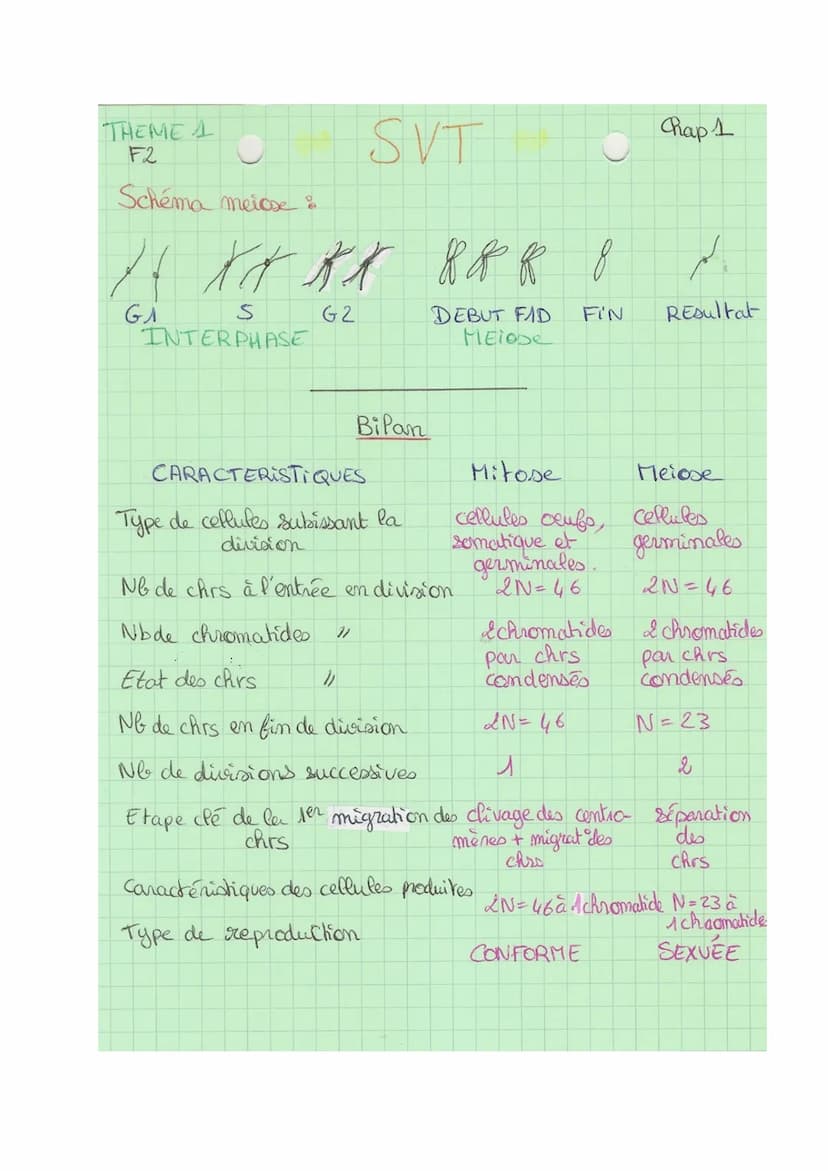 THEME 1
F2
SVT
Chap 1
Schéma meiose :
G1 S G2 DEBUT FAD FIN REsultat
INTERPHASE MEiose
Bilan
CARACTERISTIQUES Mitose Meiose
Type de cellules subissant la cellules oeufs, cellules
division somatique et germinales
germinales.
Nb de chrs à l'entrée en division 2N=46 2N=46
Nb de chromatides " 2 chromatides 2 chromatides
par chrs par chrs
Etat des chrs " condensés condensés
Nb de chrs en fin de division 2N=46 N=23
Nb de divisions successives 1 2
Etape clé de la 1er migration des clivage des centro- séparation
chrs mènes + migrat° des des
chrs chrs
Caractéristiques des cellules produites 2N=46 à 1chromatide N=23 à
1chromatide
Type de reproduction CONFORME SEXUÉE